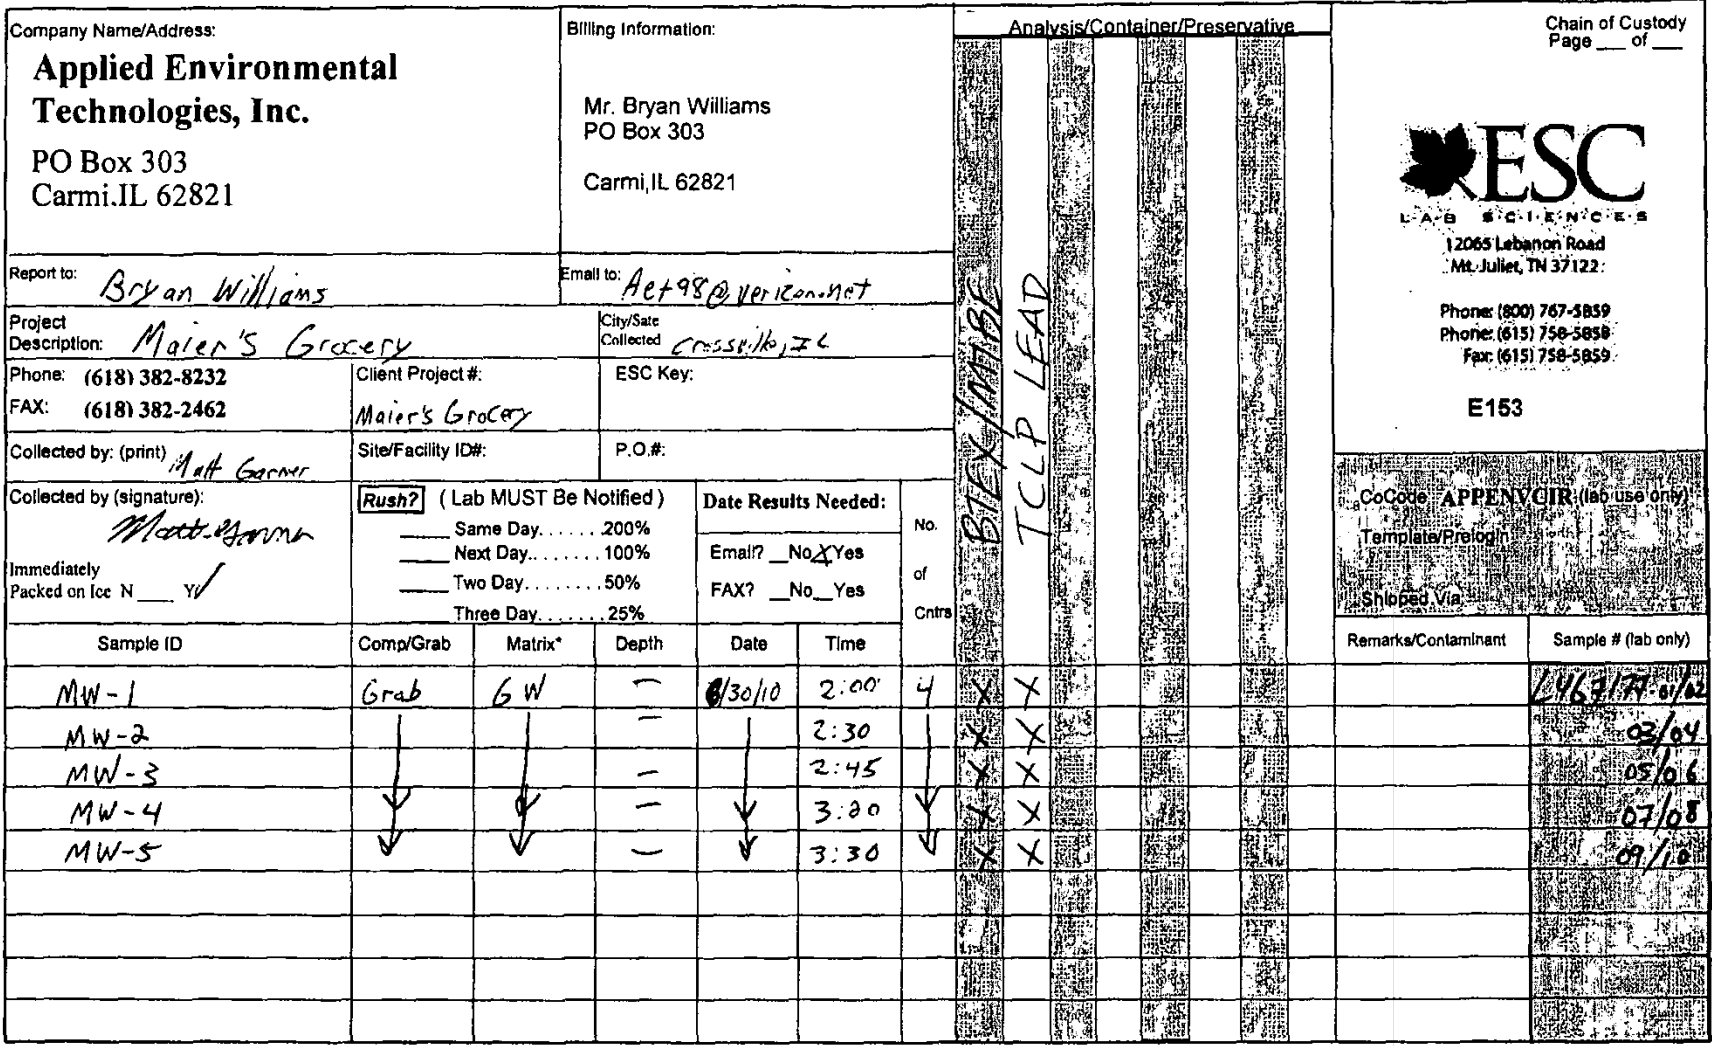 Company Name/Address:
Applied Environmental
Technologies, Inc.
PO Box 303
Carmi.IL 62821
Billing Information:
Mr. Bryan Williams
PO Box 303
Carmi,IL 62821
Analysis/Container/Preservative
BTEX/MTBE
TCLP LEAD
Chain of Custody
Page ___ of ___
ESC
L·A·B S·C·I·E·N·C·E·S
12065 Lebanon Road
Mt. Juliet, TN 37122
Phone: (800) 767-5859
Phone: (615) 758-5858
Fax: (615) 758-5859
E153
CoCode APPENVCIR (lab use only)
Template/Prelogin
Shipped Via
Report to: Bryan Williams
Email to: Aet98@verizon.net
Project
Description: Maier's Grocery
City/Sate
Collected Crossville, IL
Phone: (618) 382-8232
FAX: (618) 382-2462
Client Project #:
Maier's Grocery
ESC Key:
Collected by: (print) Matt Garner
Site/Facility ID#:
P.O.#:
Collected by (signature):
Matt Garner
Immediately
Packed on Ice N ___ Y ✓
Rush? ( Lab MUST Be Notified )
___ Same Day. . . . . . .200%
___ Next Day.. . . . . . .100%
___ Two Day. . . . . . . .50%
___ Three Day. . . . . . .25%
Date Results Needed:
Email? __No X Yes
FAX? __No__Yes
No.
of
Cntrs
Sample ID Comp/Grab Matrix* Depth Date Time Remarks/Contaminant Sample # (lab only)
MW-1 Grab GW — 6/30/10 2:00 4 X X L467177-01/02
MW-2 — 2:30 X X 03/04
MW-3 — 2:45 X X 05/06
MW-4 — 3:20 X X 07/08
MW-5 — 3:30 X X 09/10